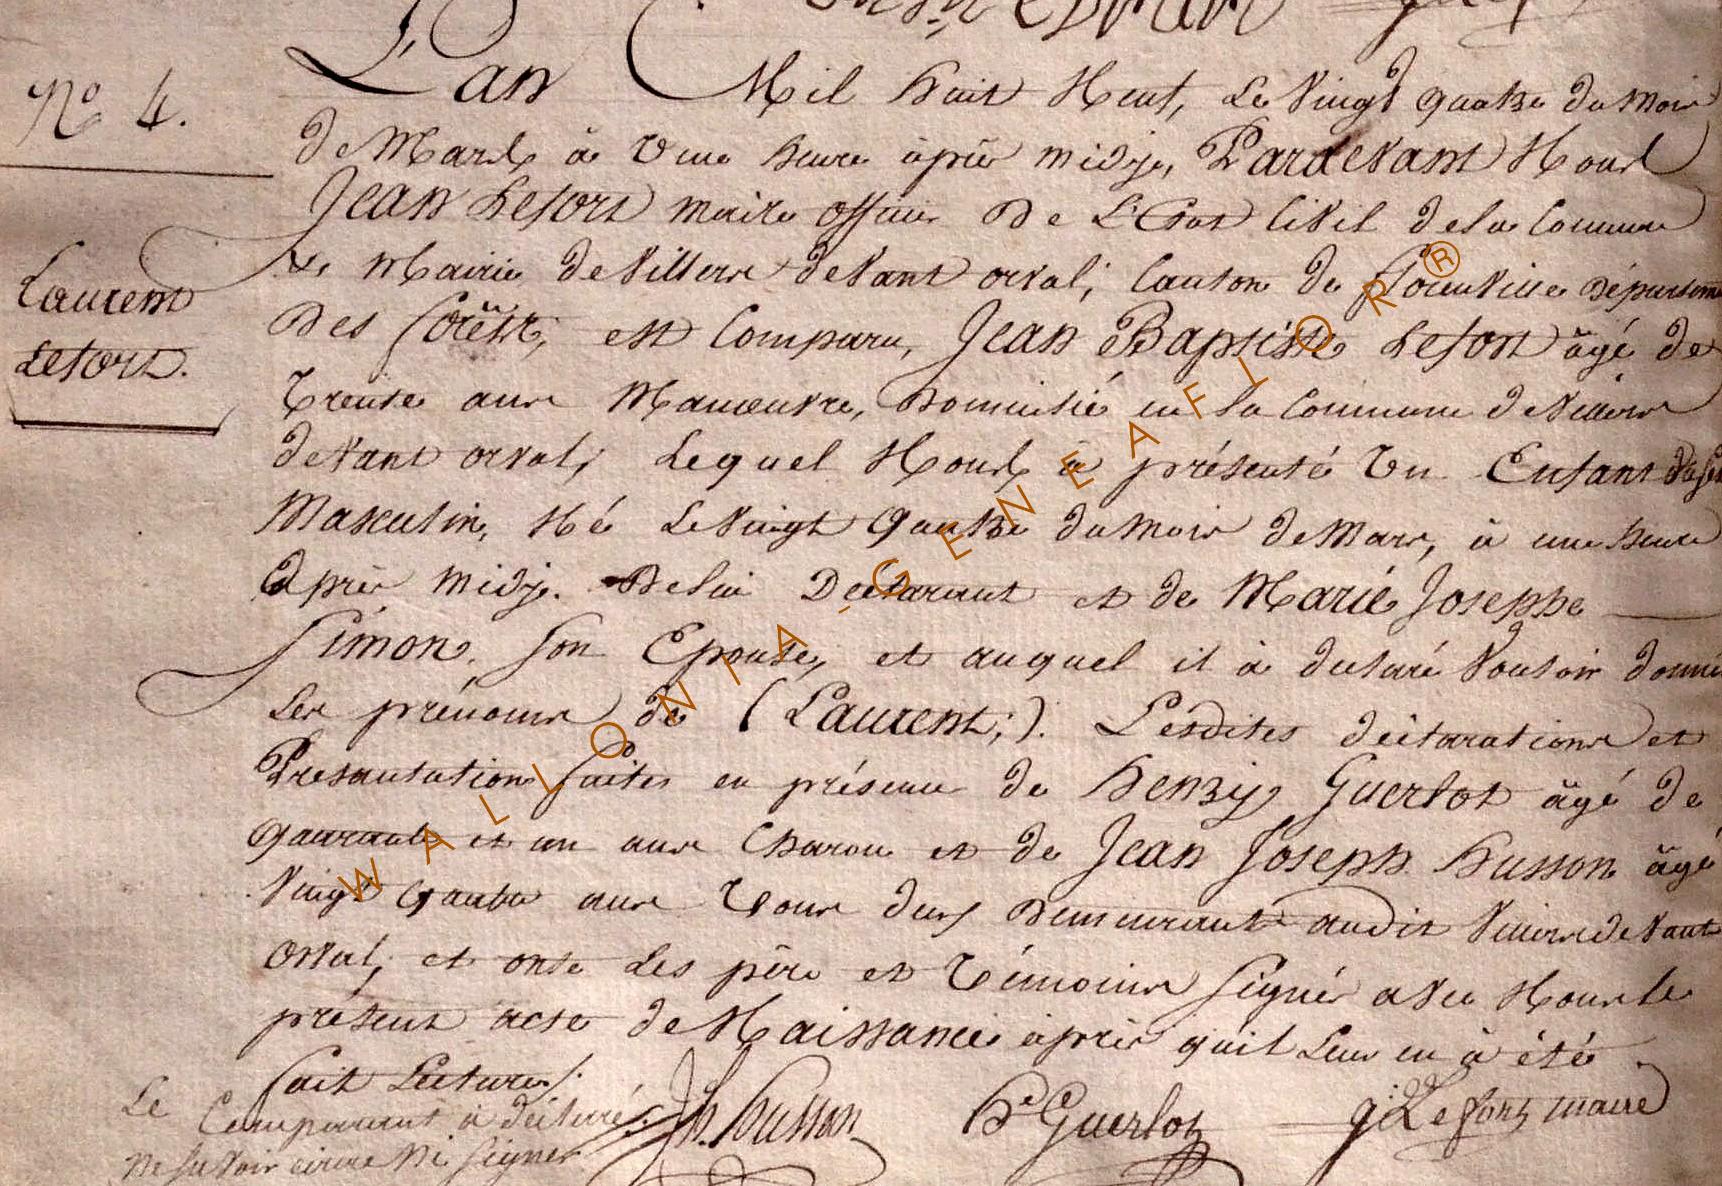 N.o 4.
Laurent
Lefort.
L'an Mil huit Neuf, Le Vingt quatre du Mois
de Mars, à Une heure àprès midy, Pardevant Nous
Jean Lefort maire officier De L'Etat Civil dela Commune
Mairie de Villers devant orval, Canton de florenville Département
Des forêts, est Comparu, Jean Baptiste Lefort âgé de
Trente ans Manœuvre, Domicilié en la Commune de Villers
devant orval, Lequel Nous à présenté Un Enfant du Sexe
Masculin, Né Le Vingt quatre du Mois de Mars, à une heure
Après midy. De lui Déclarant et de Marie Josephe
Simon. son Epouse, et auquel il à déclaré Vouloir donner
Les prénoms de (Laurent;). Lesdites déclarations et
Présentation faites en présence de henry Guerlot âgé de
quarante et un ans Charon et de Jean Joseph husson âgé
Vingt quatre ans Tous deux Demeurant audit Villers devant
orval, et onts Les père et Témoins signés avec Nous le
présent acte de Naissance àprès quil Leur en à été
fait Lecture/.
Le Comparant à déclaré
Ne savoir écrire Ni signer
Jh. husson
he Guerlot
j: Lefort maire
WALLONIA-GENEAFLOR®